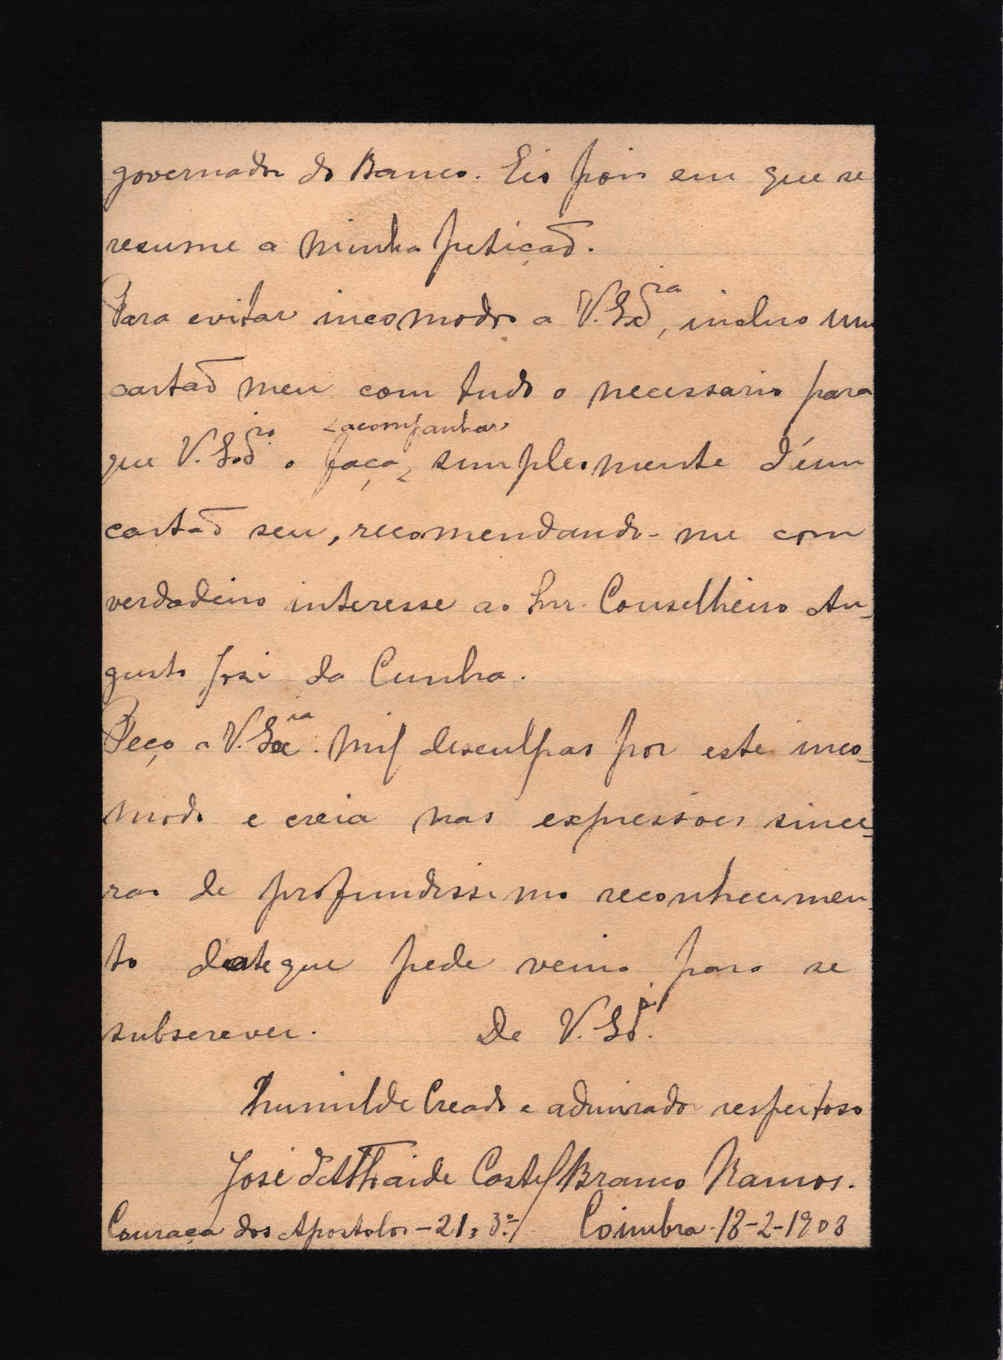 governador do Banco. Eis pois em que se
resume a minha petição.
Para evitar incomodo a V. Ex.cia, incluo um
cartão meu com tudo o necessario para
que V. Ex.cia o faça acompanhar, simplesmente d'um
cartão seu, recomendando-me com
verdadeiro interesse ao Snr. Conselheiro Au-
gusto José da Cunha.
Peço a V. Ex.cia mil desculpas por este inco-
modo e creia nas expressões since-
ras de profundissimo reconhecimen-
to d'este que pede venia para se
subscrever. De V. Ex.cia
humilde Creado e admirador respeitoso
José d'Athaide Castel Branco Ramos.
Couraça dos Apostolos – 21, 3º. Coimbra 18-2-1908